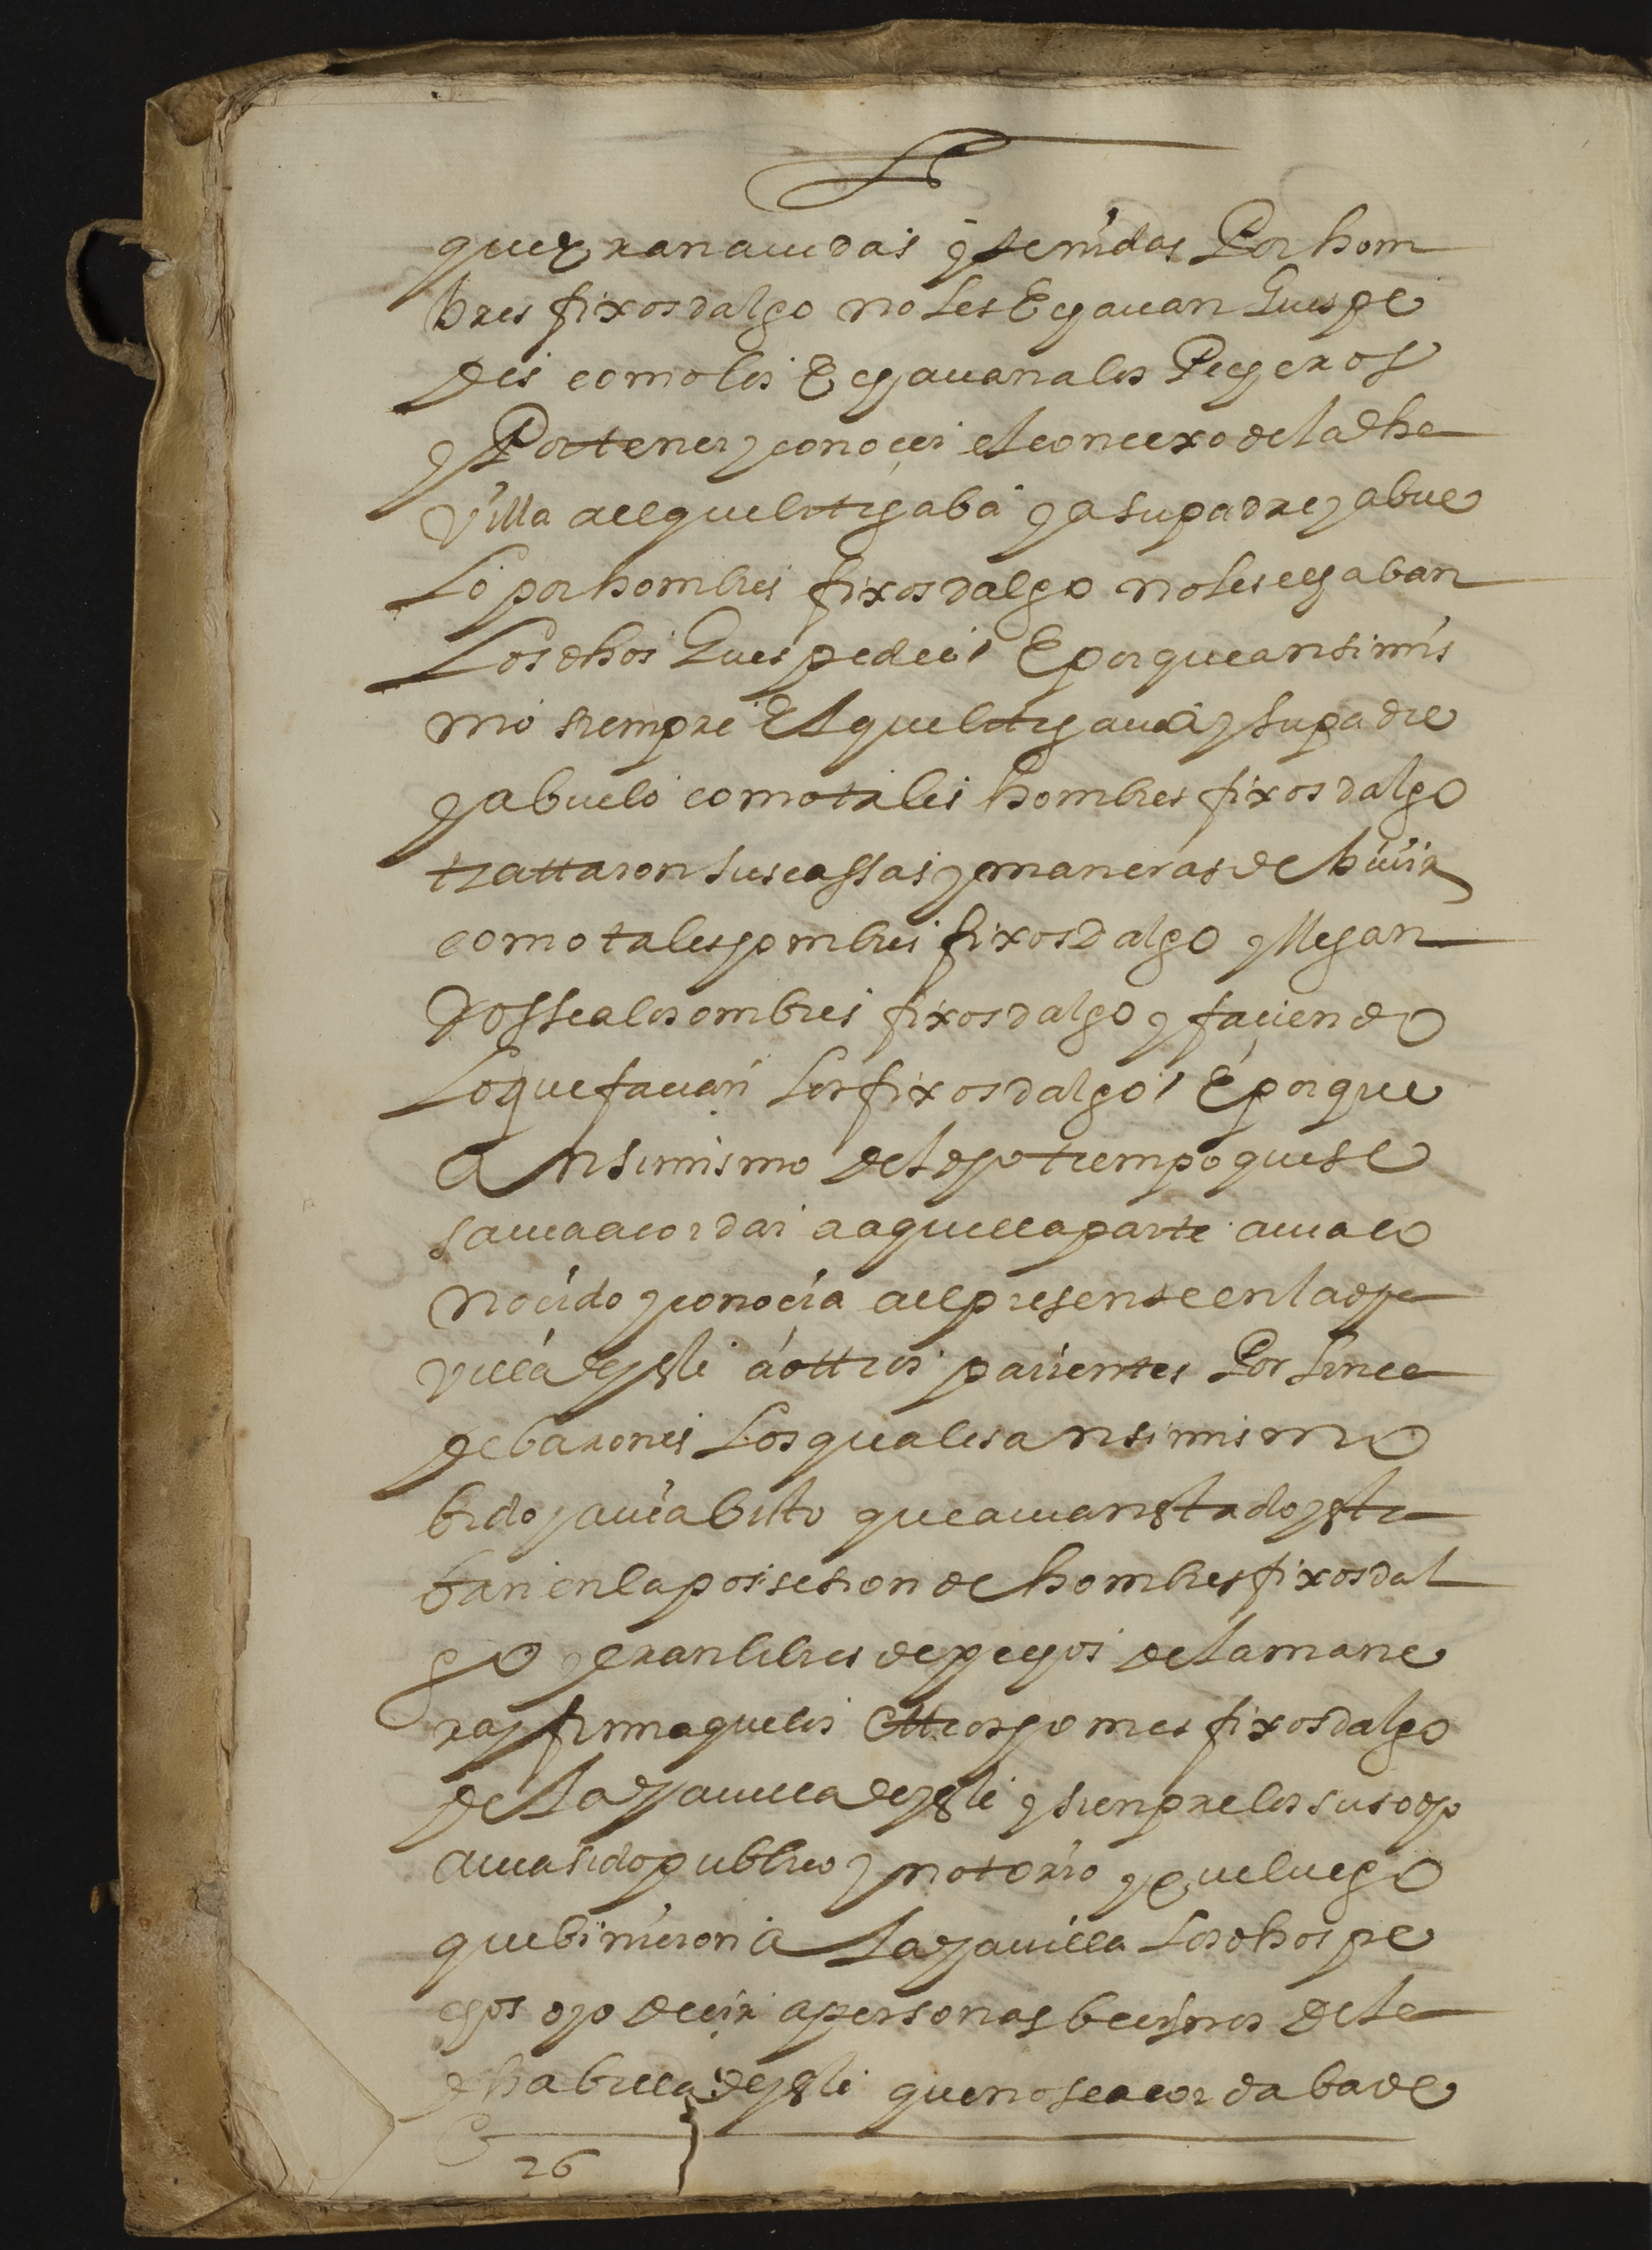 que eran auidas y tenidas Por hom
bres fixosdalgo no les Echauan Guespe
des como los Echauan a los Pecheros
y Por tener y conoçer el conçexo de la dha
villa a el que litigaba y a su padre y abue
lo por hombres fixosdalgo no les echaban
Los dhos Guespedes E porque ansimis
mo siempre El que litigaua y su padre
y abuelo como tales hombres fixosdalgo
trattaron sus cassas y maneras de biuir
como tales hombres fixosdalgo y llegan
dosse a los ombres fixosdalgo y façiendo
Lo que façian Los fixosdalgo E porque
Ansimismo del dho tiempo que se
sauia acordar a aquella parte auia co
nocido y conocia a el presente en la dha
villa de yste a ottros parientes Por linea
de barones Los quales ansimismo
bido y auia bisto que auian estado y esta
ban en la possesion de hombres fixosdal
go y eran libres de pechos de la mane
ra y firma que los Ottros homes fixosdalgo
de La dha villa de yste y sienpre lo susodho
auia sido publico y notorio y que luego
que binieron a La dha villa Los dhos pe
chos oyo deçir a personas beçinos de la
dha billa de yste que no se acordaba de
26